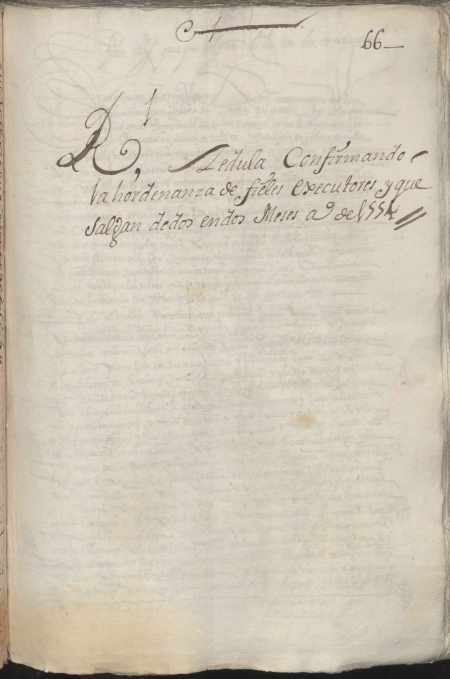 66
Rl, Zedula Confirmando
la hordenanza de fieles executores, y que
salgan de dos en dos Meses aº de 1554